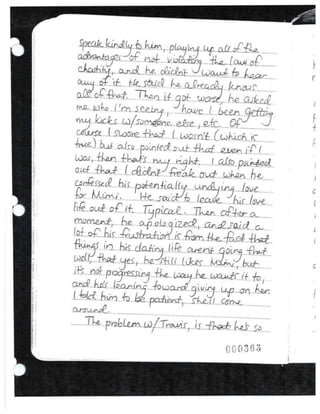 speak kindly to him, playing up all of the
advantages of not violating the law of
chastity, and he didn't want to hear
any of it. He said he already knows
all of that. Then it got worse, he asked
me who I'm seeing, have I been getting
my kicks w/someone else, etc. Of
course I swore that I wasn't (which is
true) but also pointed out that even if I
was, then that's my right. I also pointed
out that I didn't freak out when he
confessed his potentially undying love
for Mimi. He said to leave his love
life out of it. Typical. Then after a
moment, he apologized, and said a
lot of his frustration is from the fact that
things in his dating life aren't going that
well, that yes, he still likes Mimi, but
it's not progressing the way he wants it to,
and he's leaning toward giving up on her.
I told him to be patient, she'll come
around.
The problem w/Travis, is that he's so
000363